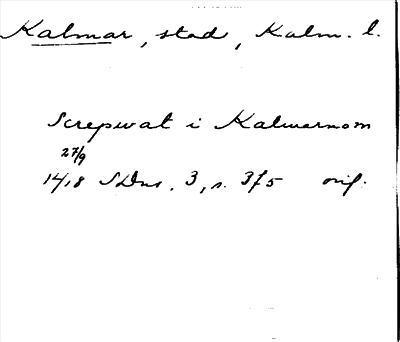 Kalmar, stad, Kalm. l.
Screpwat i Kalmarnom
27/9
1418 SDns. 3, s. 375 orig.